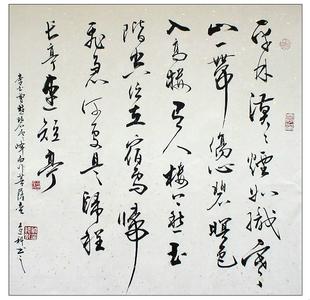 平林漠〻煙如織寒
山一帶傷心碧暝色
入高樓有人樓上愁玉
階空佇立宿鳥歸
飛急何處是歸程
長亭連短亭